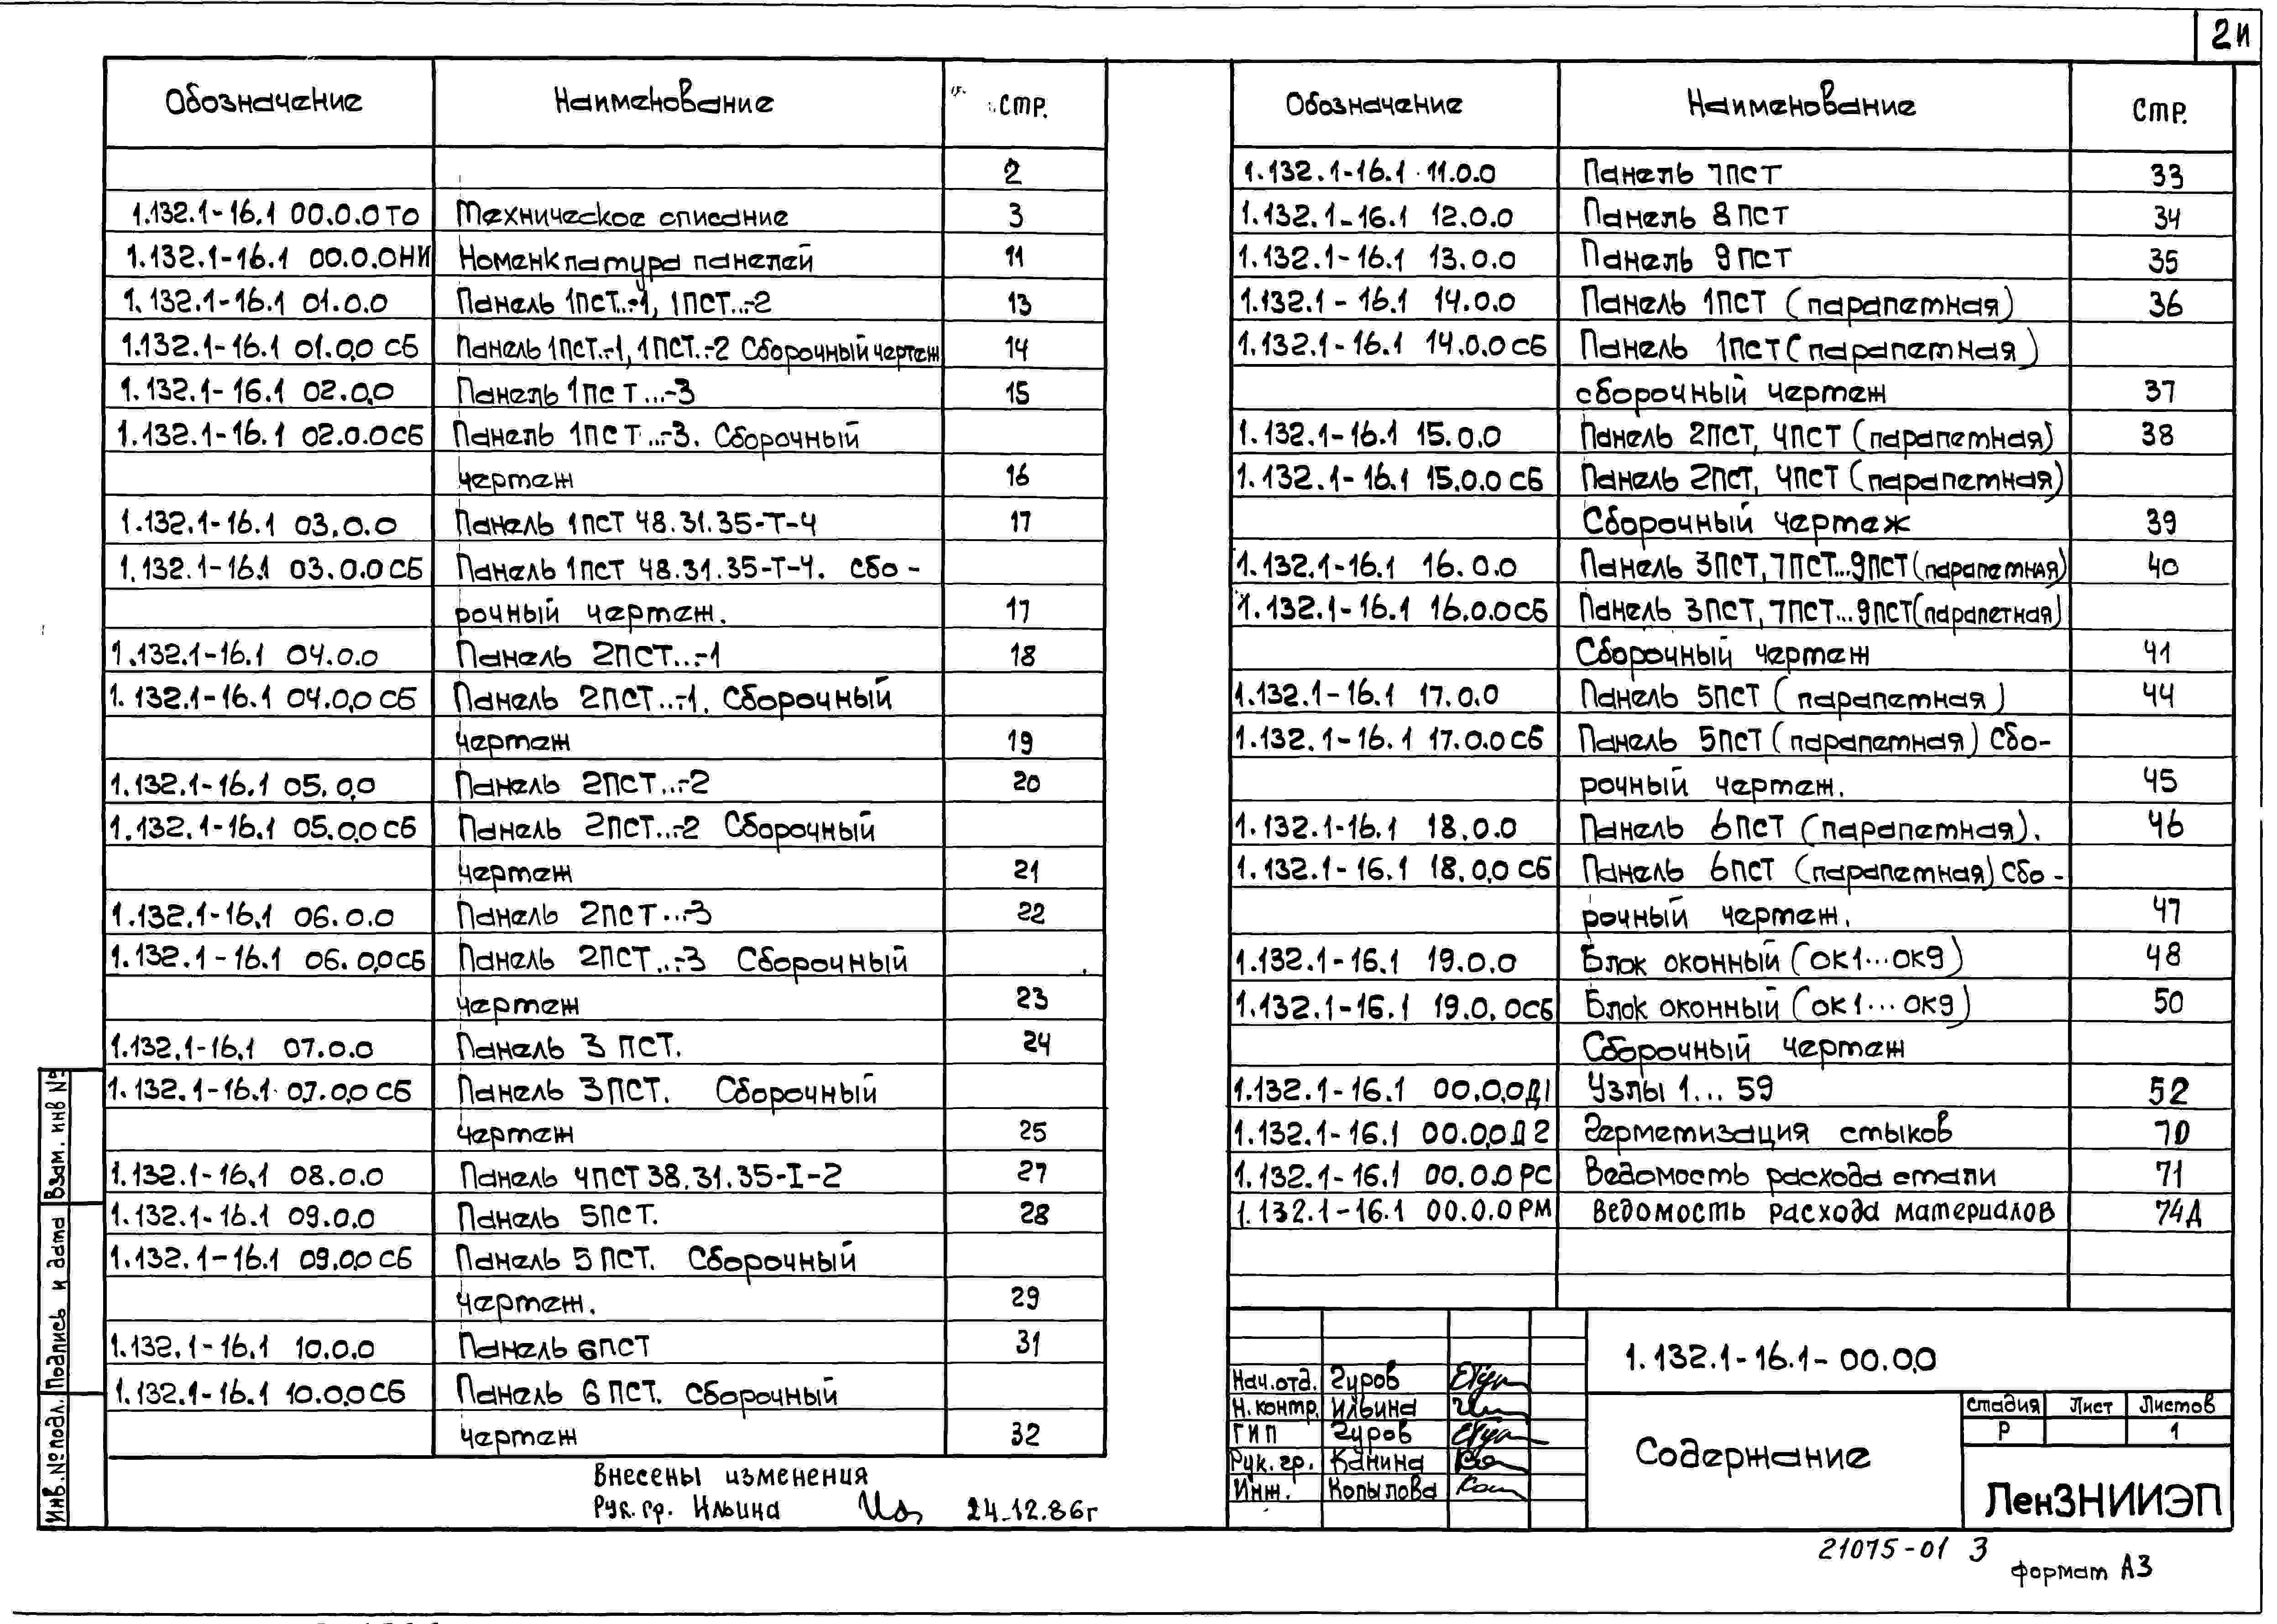 2и
Обозначение Наименование стр.
2
1.132.1-16.1 00.0.0ТО Техническое списание 3
1.132.1-16.1 00.0.0НИ Номенклатура панелей 11
1.132.1-16.1 01.0.0 Панель 1пст...-1, 1пст...-2 13
1.132.1-16.1 01.0.0 сб Панель 1пст..-1, 1пст..-2 Сборочный чертеж 14
1.132.1-16.1 02.0.0 Панель 1пст...-3 15
1.132.1-16.1 02.0.0сб Панель 1пст...-3. Сборочный
чертеж 16
1.132.1-16.1 03.0.0 Панель 1пст 48.31.35-Т-4 17
1.132.1-16.1 03.0.0сб Панель 1пст 48.31.35-Т-4. сбо-
рочный чертеж. 17
1.132.1-16.1 04.0.0 Панель 2пст...-1 18
1.132.1-16.1 04.0.0 сб Панель 2пст...-1. Сборочный
чертеж 19
1.132.1-16.1 05.0.0 Панель 2пст...-2 20
1.132.1-16.1 05.0.0 сб Панель 2пст...-2 Сборочный
чертеж 21
1.132.1-16.1 06.0.0 Панель 2пст...-3 22
1.132.1-16.1 06.0.0сб Панель 2пст...-3 Сборочный
чертеж 23
1.132.1-16.1 07.0.0 Панель 3 пст. 24
1.132.1-16.1 07.0.0 сб Панель 3пст. Сборочный
чертеж 25
1.132.1-16.1 08.0.0 Панель 4пст 38.31.35-I-2 27
1.132.1-16.1 09.0.0 Панель 5пст. 28
1.132.1-16.1 09.0.0 сб Панель 5 пст. Сборочный
чертеж. 29
1.132.1-16.1 10.0.0 Панель 6пст 31
1.132.1-16.1 10.0.0 сб Панель 6 пст. Сборочный
чертеж 32
Внесены изменения
Рук. гр. Ильина 24.12.86г
Взам. инв №
Подпись и дата
Инв. № подл.
Обозначение Наименование Стр.
1.132.1-16.1 11.0.0 Панель 7пст 33
1.132.1-16.1 12.0.0 Панель 8пст 34
1.132.1-16.1 13.0.0 Панель 9пст 35
1.132.1-16.1 14.0.0 Панель 1пст (парапетная) 36
1.132.1-16.1 14.0.0 сб Панель 1пст (парапетная)
сборочный чертеж 37
1.132.1-16.1 15.0.0 Панель 2пст, 4пст (парапетная) 38
1.132.1-16.1 15.0.0 сб Панель 2пст, 4пст (парапетная)
Сборочный чертеж 39
1.132.1-16.1 16.0.0 Панель 3пст, 7пст...9пст (парапетная) 40
1.132.1-16.1 16.0.0сб Панель 3пст, 7пст...9пст (парапетная)
Сборочный чертеж 41
1.132.1-16.1 17.0.0 Панель 5пст (парапетная) 44
1.132.1-16.1 17.0.0сб Панель 5пст (парапетная) Сбо-
рочный чертеж. 45
1.132.1-16.1 18.0.0 Панель 6пст (парапетная). 46
1.132.1-16.1 18.0.0 сб Панель 6пст (парапетная) Сбо-
рочный чертеж. 47
1.132.1-16.1 19.0.0 Блок оконный (ОК1...ОК9) 48
1.132.1-16.1 19.0.0сб Блок оконный (ОК1...ОК9) 50
Сборочный чертеж
1.132.1-16.1 00.0.0Д1 Узлы 1...59 52
1.132.1-16.1 00.0.0Д2 Герметизация стыков 70
1.132.1-16.1 00.0.0 РС Ведомость расхода стали 71
1.132.1-16.1 00.0.0 РМ Ведомость расхода материалов 74Д
1.132.1-16.1-00.0.0
Нач.отд. Гуров
Н.контр. Ильина
ГИП Гуров
Рук. гр. Канина
Инж. Копылова
Содержание
стадия Лист Листов
Р 1
ЛенЗНИИЭП
21075-01 3
формат А3